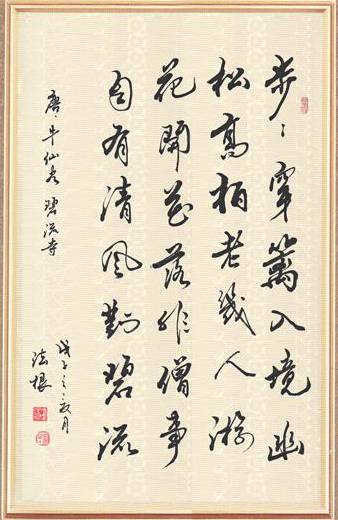 步々穿篱入境幽
松高柏老幾人游
花開花落非僧事
自有清风對碧流
唐·牛仙客 碧流寺
戊子之夏月
法根